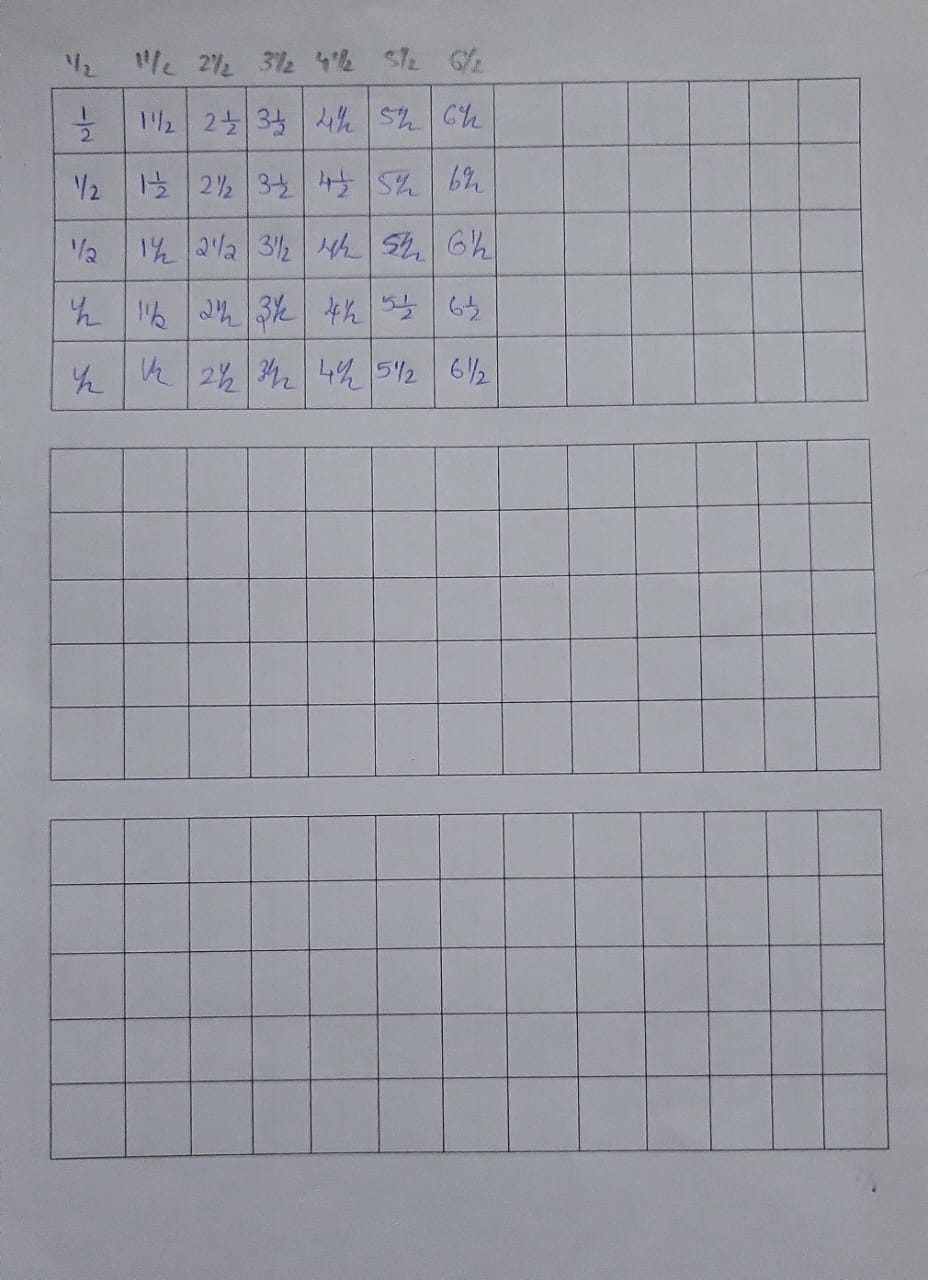 1/2 1 1/2 2 1/2 3 1/2 4 1/2 5 1/2 6 1/2
1/2 1 1/2 2 1/2 3 1/2 4 1/2 5 1/2 6 1/2
1/2 1 1/2 2 1/2 3 1/2 4 1/2 5 1/2 6 1/2
1/2 1 1/2 2 1/2 3 1/2 4 1/2 5 1/2 6 1/2
1/2 1 1/2 2 1/2 3 1/2 4 1/2 5 1/2 6 1/2
1/2 2 1/2 3 1/2 4 1/2 5 1/2 6 1/2